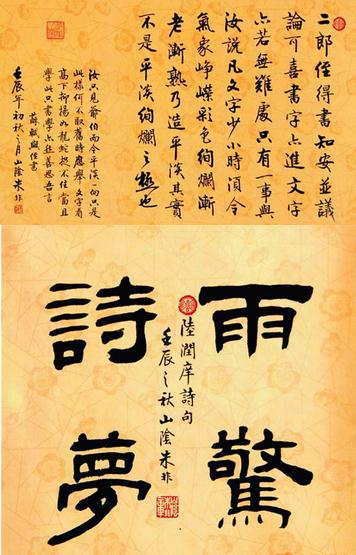 二郎侄得書知安並議
論可喜書字亦進文字
亦若無難處只有一事與
汝說凡文字少小時須令
氣象崢嶸彩色絢爛漸
老漸熟乃造平淡其實
不是平淡絢爛之極也
汝只見爺伯而今平淡一向只是
此樣何不取舊時應舉文字看
高下抑揚如龍蛇捉不住當且
學此只書學亦然善思吾言
蘇軾與侄書
壬辰年初秋之月山陰朱非
雨驚
詩夢
陸潤庠詩句
壬辰之秋山陰朱非